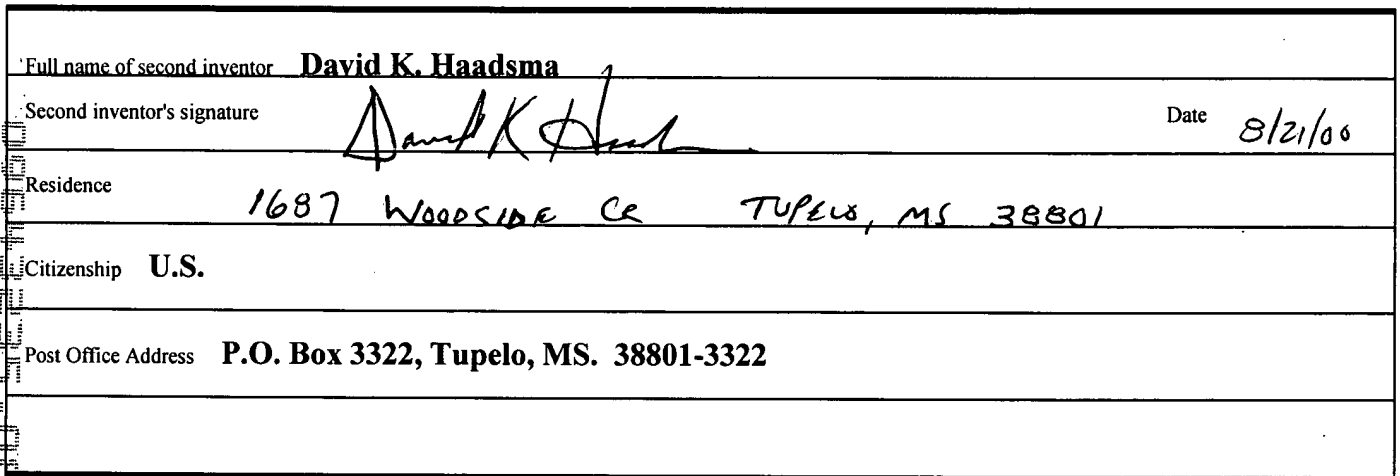 Full name of second inventor David K. Haadsma
Second inventor's signature David K Haad Date 8/21/00
Residence 1687 WOODSIDE CR TUPELO, MS 38801
Citizenship U.S.
Post Office Address P.O. Box 3322, Tupelo, MS. 38801-3322